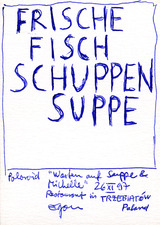 FRISCHE
FISCH
SCHUPPEN
SUPPE
Polaroid "Warten auf Suppe &
Michelle" 26 XI 97
Restaurant in TRZEBIATÓW
Poland